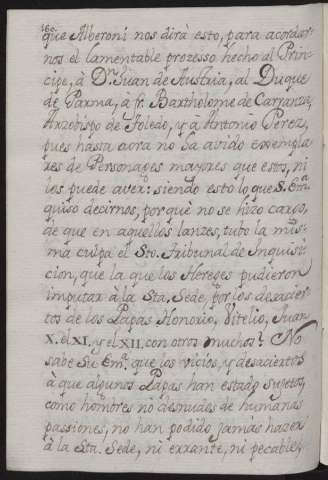 160.
que Alberoni nos dirà esto, para acordar-
nos el lamentable prozesso hecho al Prin-
cipe, à Dn. Juan de Austria, al Duque
de Parma, a fr. Bartholome de Carranza,
Arzobispo de Toledo, y a Antonio Perez,
pues hasta aora no ha avido exempla-
res de Personages mayores que estos, ni
los puede aver: siendo esto lo que S. Emª.
quiso decirnos, porquè no se hizo cargo,
de que en aquellos lanzes, tubo la mis-
ma culpa el Sto. Tribunal de Inquisi-
cion, que la que los Hereges pudieron
imputar à la Sta. Sede, por los desacier-
tos de los Papas Honorio, Vitelio, Juan
X. el XI. y el XII. con otros muchos? No
sabe Su Emª. que los vicios, y desaciertos
à que algunos Papas han estado sujetos,
como hombres no desnudos de humanas
passiones, no han podido jamàs hazer
à la Sta. Sede, ni errante, ni pecable,